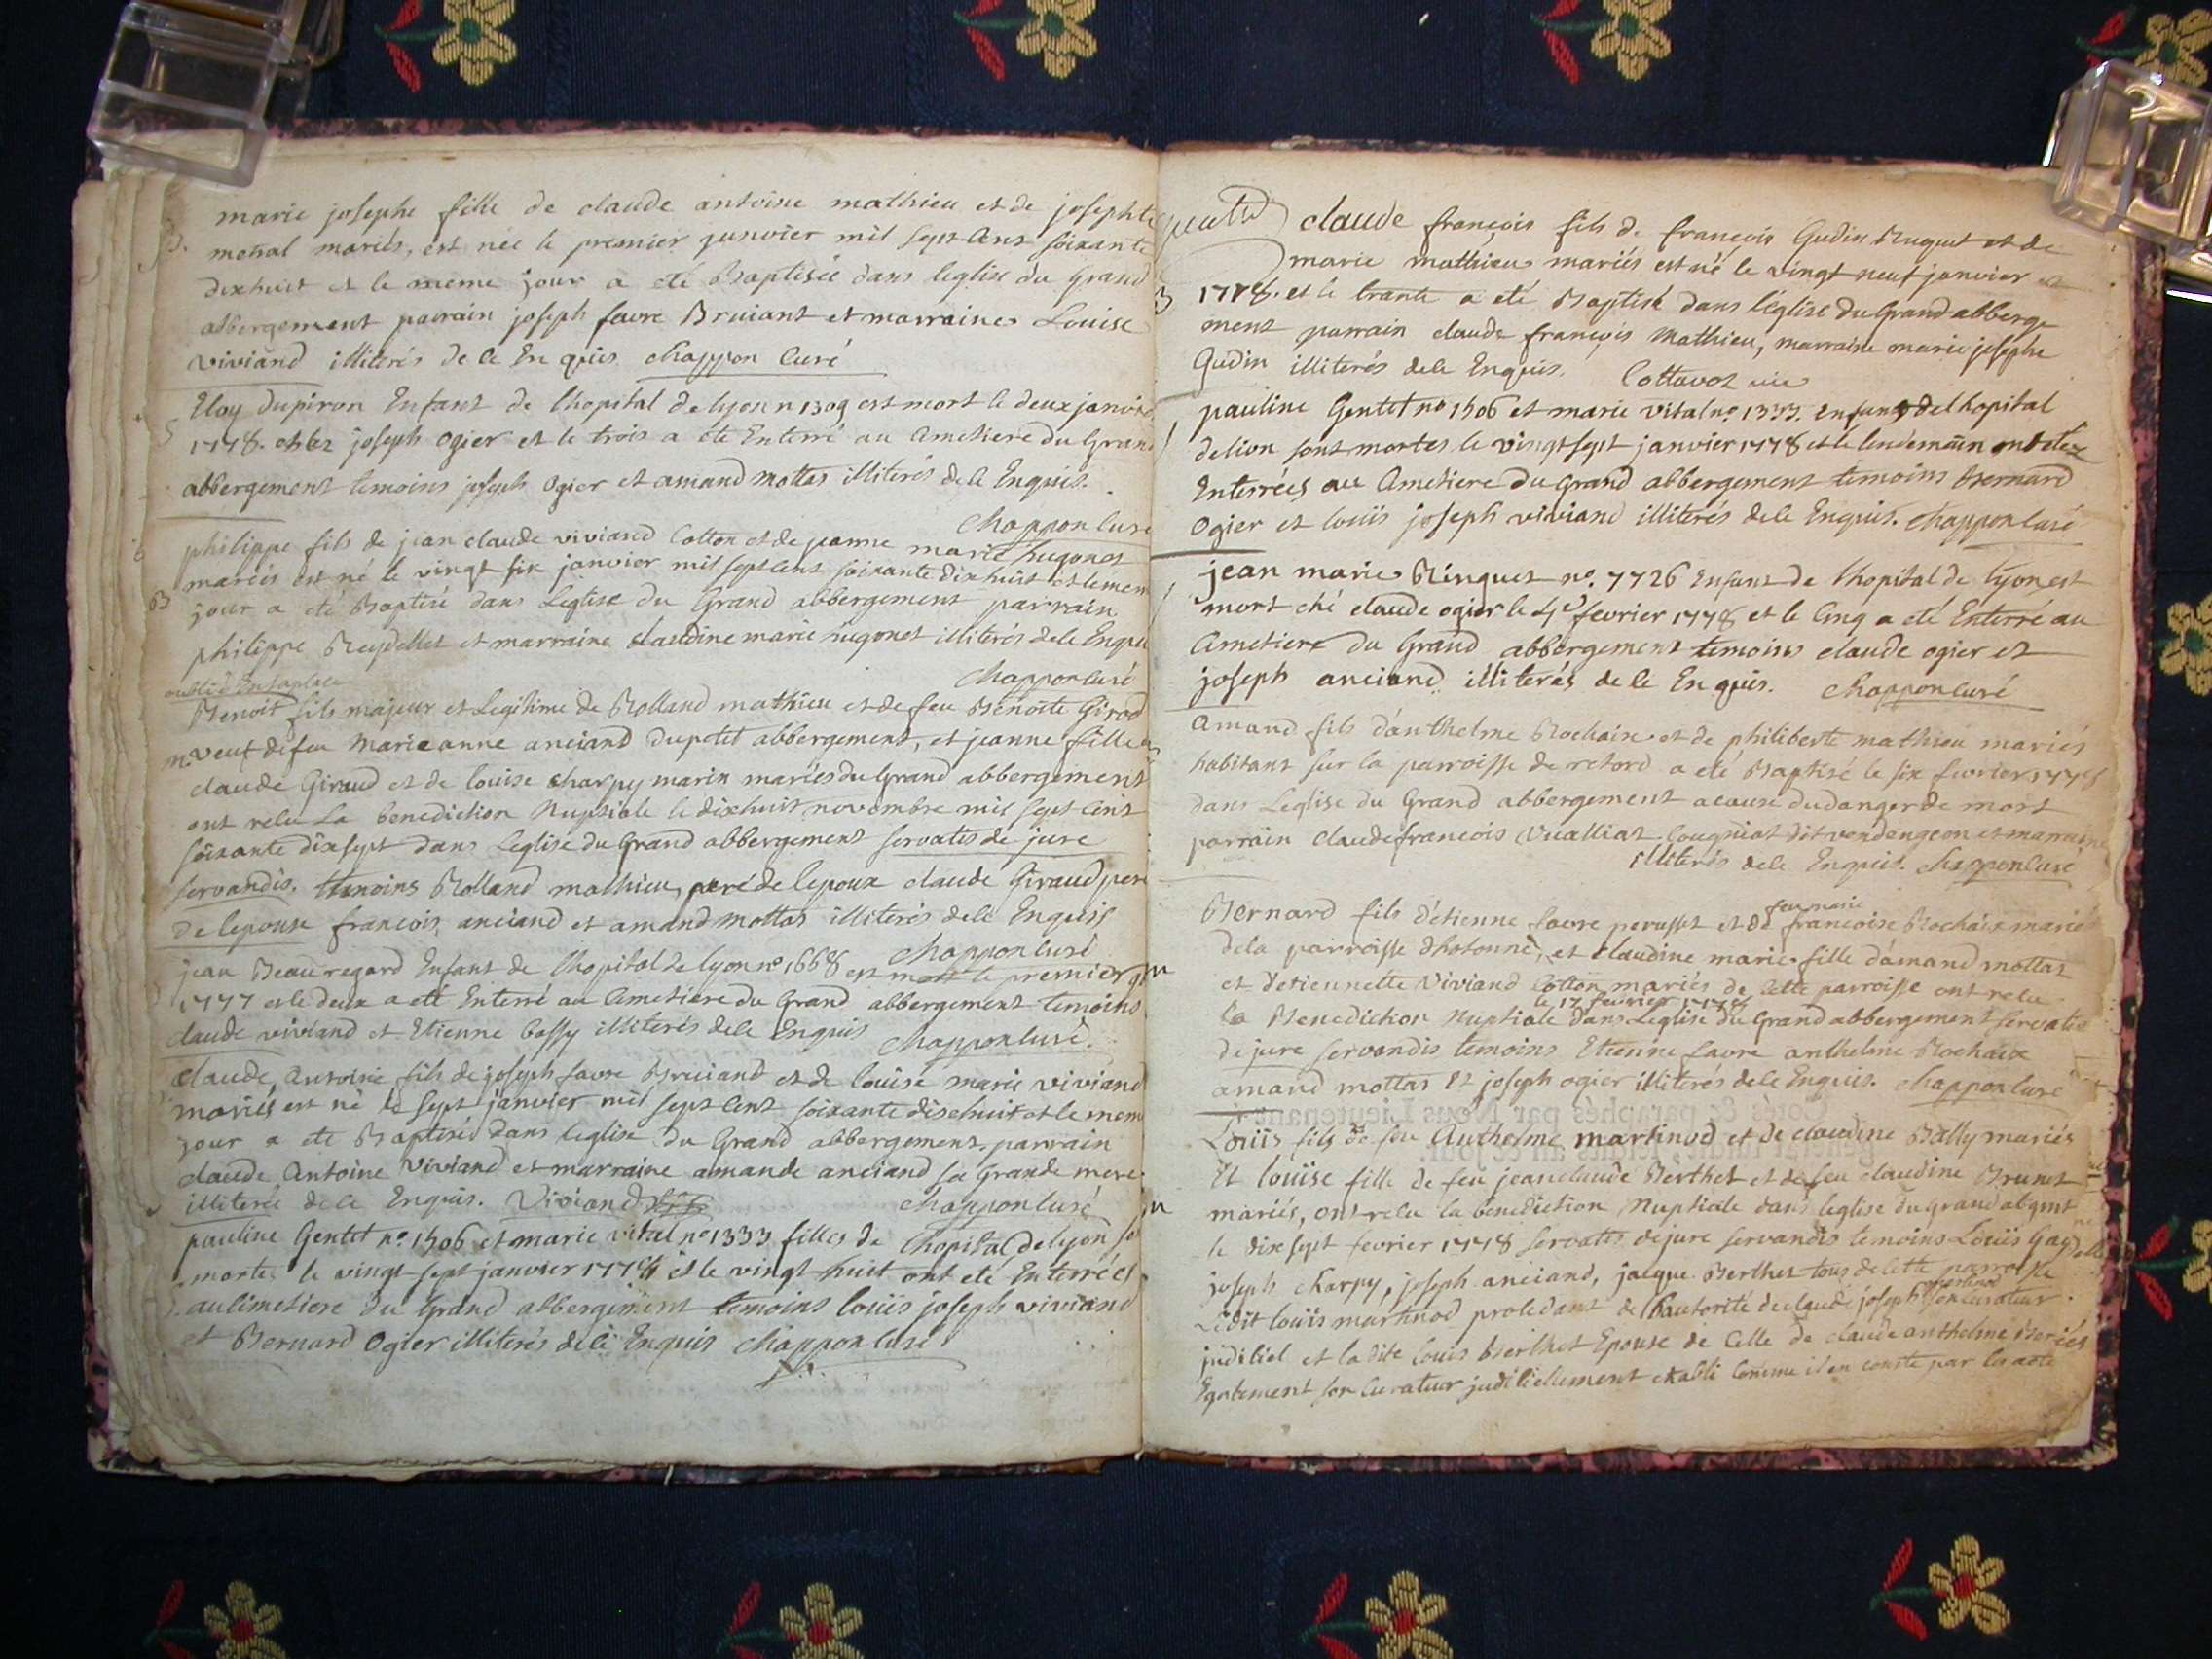 marie josephe fille de claude antoine mathieu et de josephte
mermet mariés, est née le premier janvier mil sept cens soixante
dixhuit et le meme jour a eté Baptisée dans leglise du Grand
abbergement parrain joseph favre Bruiant et marraine Louise
Viviand illiterés de ce Enquis. Chappon curé
Eloy Dupiron Enfant de lhopital de lyon n 1309 est mort le deux janvier
1778. chez joseph Ogier et le trois a eté Enterré au Cimetiere du Grand
abbergement temoins joseph Ogier et amand Mottas illiterés de ce Enquis.
Chappon curé
philippe fils de jean claude viviand Cotton et de jeanne marie hugonet
B
mariés est né le vingt six janvier mil sept cens soixante dixhuit et le mem
jour a eté Baptisé dans Leglise du Grand abbergement parrain
philippe Reydellet et marraine claudine marie hugonet illiterés de ce Enquis
Chappon curé
oublié En sa place
Benoit fils majeur et Legitime de Rolland mathieu et de feu Benoite Girod
m. veuf de feu Marieanne anciand du petit abbergement, et jeanne fille de
claude Giraud et de louise charpy marin mariés du Grand abbergement
ont recu La benediction Nuptiale le dixhuit novembre mil sept cent
soixante dixsept dans Leglise du Grand abbergement servatis de jure
servandis. temoins Rolland mathieu, pere de lepoux claude Giraud pere
de lepouse francois anciand et amand mottas illiterés de ce Enquis
Chappon curé
jean Beauregard Enfant de lhopital de lyon n° 1668 est mort le premier
1777 et le deux a eté Enterré au Cimetiere du Grand abbergement temoins
claude viviand et Etienne Bassy illiterés de ce Enquis Chappon curé.
claude Antoine fils de joseph favre Bruiand et de louise marie viviand
mariés est né le sept janvier mil sept cens soixante dixhuit et le mem
jour a eté Baptisé dans leglise du Grand abbergement, parrain
claude Antoine Viviand et marraine amande anciand sa Grande mere
illiterée de ce Enquis. Viviand Chappon curé
pauline Gentet n° 1506 et marie vital n° 1333 filles de lhopital de lyon so
mortes le vingt sept janvier 1778 et le vingt huit ont eté Enterrées
au cimetiere du Grand abbergement temoins louis joseph viviand
et Bernard Ogier illiterés de ce Enquis Chappon curé
claude françois fils de françois Gudin Ruquet et de
marie mathieu mariés est né le vingt neuf janvier
B
1778. et le trante a eté Baptisé dans léglise du Grand abberge
ment parrain claude françois Mathieu, marraine marie josephe
Gudin illiterés de ce Enquis. Cottavoz vic
pauline Gentet n° 1506 et marie vital n° 1333. enfans de lhopital
de lion sont mortes le vingt sept janvier 1778 et le lendemain ont etez
Enterrées au Cimetiere du Grand abbergement temoins Bernard
Ogier et louis joseph viviand illiterés de ce Enquis. Chappon curé
jean marie Ringuet n° 7726 Enfant de lhopital de lyon est
mort ché claude ogier le 4e fevrier 1778 et le cinq a eté Enterré au
Cimetiere du Grand abbergement temoins claude ogier et
joseph anciand illiterés de ce Enquis. Chappon curé
Amand fils d'anthelme Rochaix et de philiberte mathieu mariés
habitans sur la parroisse de retord a eté Baptisé le six fevrier 1778
dans Leglise du Grand abbergement a cause du danger de mort
parrain Claude francois Vualliat Cougniat dit vendengeon et marraine
illiterés de ce Enquis. Chappon curé
Bernard fils d'etienne favre perusset et de feu marie francoise Rochaix mariés
de la parroisse dhotonne, et claudine marie fille d'amand mottas
et d'etiennette Viviand Cotton mariés de cette parroisse ont recu
le 17 fevrier 1778
la Benediction Nuptiale dans Leglise du Grand abbergement servatis
de jure servandis temoins Etienne favre anthelme Rochaix
amand mottas Et joseph ogier illiterés de ce Enquis. Chappon curé
Louis fils de feu Anthelme martinod et de claudine Bally mariés
Et louise fille de feu jean claude Berthet et de feu claudine Brunet
m
mariés, ont recu la benediction Nuptiale dans leglise du grand abgmt
le dix sept fevrier 1778 servatis de jure servandis temoins Louis Gay
joseph charpy, joseph anciand, jacque Berthet tous de cette parroisse
Ledit louis martinod procedant de lautorité de claude joseph martinod son curateur
judiciel et la dite louis Berthet Epouse de Celle de claude anthelme Beriés
Egalement son curateur judiciellement etabli comme il en conste par les acte